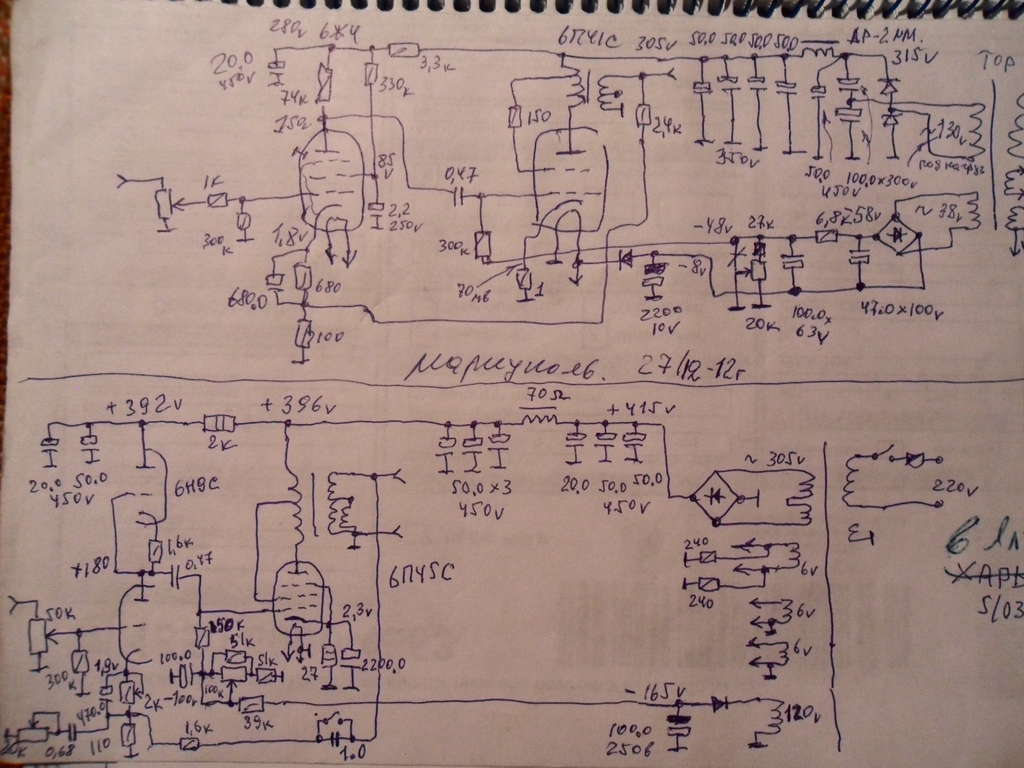 280v 6Ж4 6П41С 305v 50,0 50,0 50,0 50,0 ДР-2 мм.
20,0 450v 3,3к 315v ТОР
74к 330к
150v 150 2,4к ~130v
85v 350v
1к 0,47 50,0 450v 100,0х300v
2,2 250v
300к 1,8v 300к -48v 27к 6,8к 58v ~38v
680,0 680 70мв 1 -8v
2200 10v 20к 100,0х 63v 47,0х100v
100
Мариуполь. 27/12-12г
+392v +396v 70Ω +415v
2к
20,0 450v 50,0 6Н9С 50,0х3 450v 20,0 50,0 450v 50,0 ~305v 220v
1,6к
+180 0,47 6П45С 240 6v
240
50к 2,3v 6v
300к 1,9v 100,0 51к 51к 27 2200,0 6v
470,0 2к -100v 100к -165v 120v
39к
0,68 110 1,6к 1.0 100,0 250в